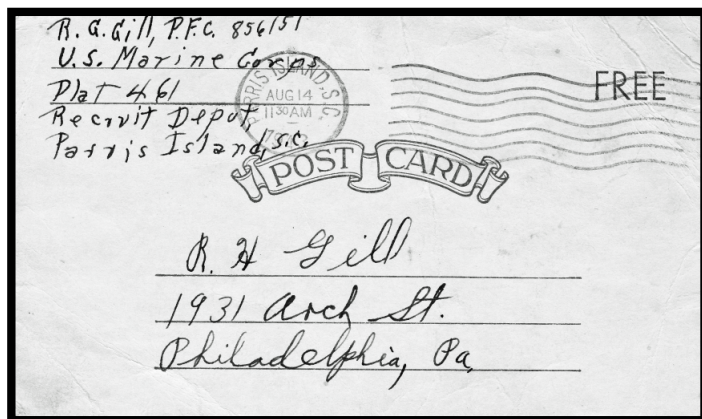 R. G. Gill, P.F.C. 856151
U.S. Marine Corps
Plat 461
Recruit Depot
Parris Island, S.C.
PARRIS ISLAND, S.C.
AUG 14
11 30 AM
FREE
POST CARD
R. H Gill
1931 Arch St.
Philadelphia, Pa.